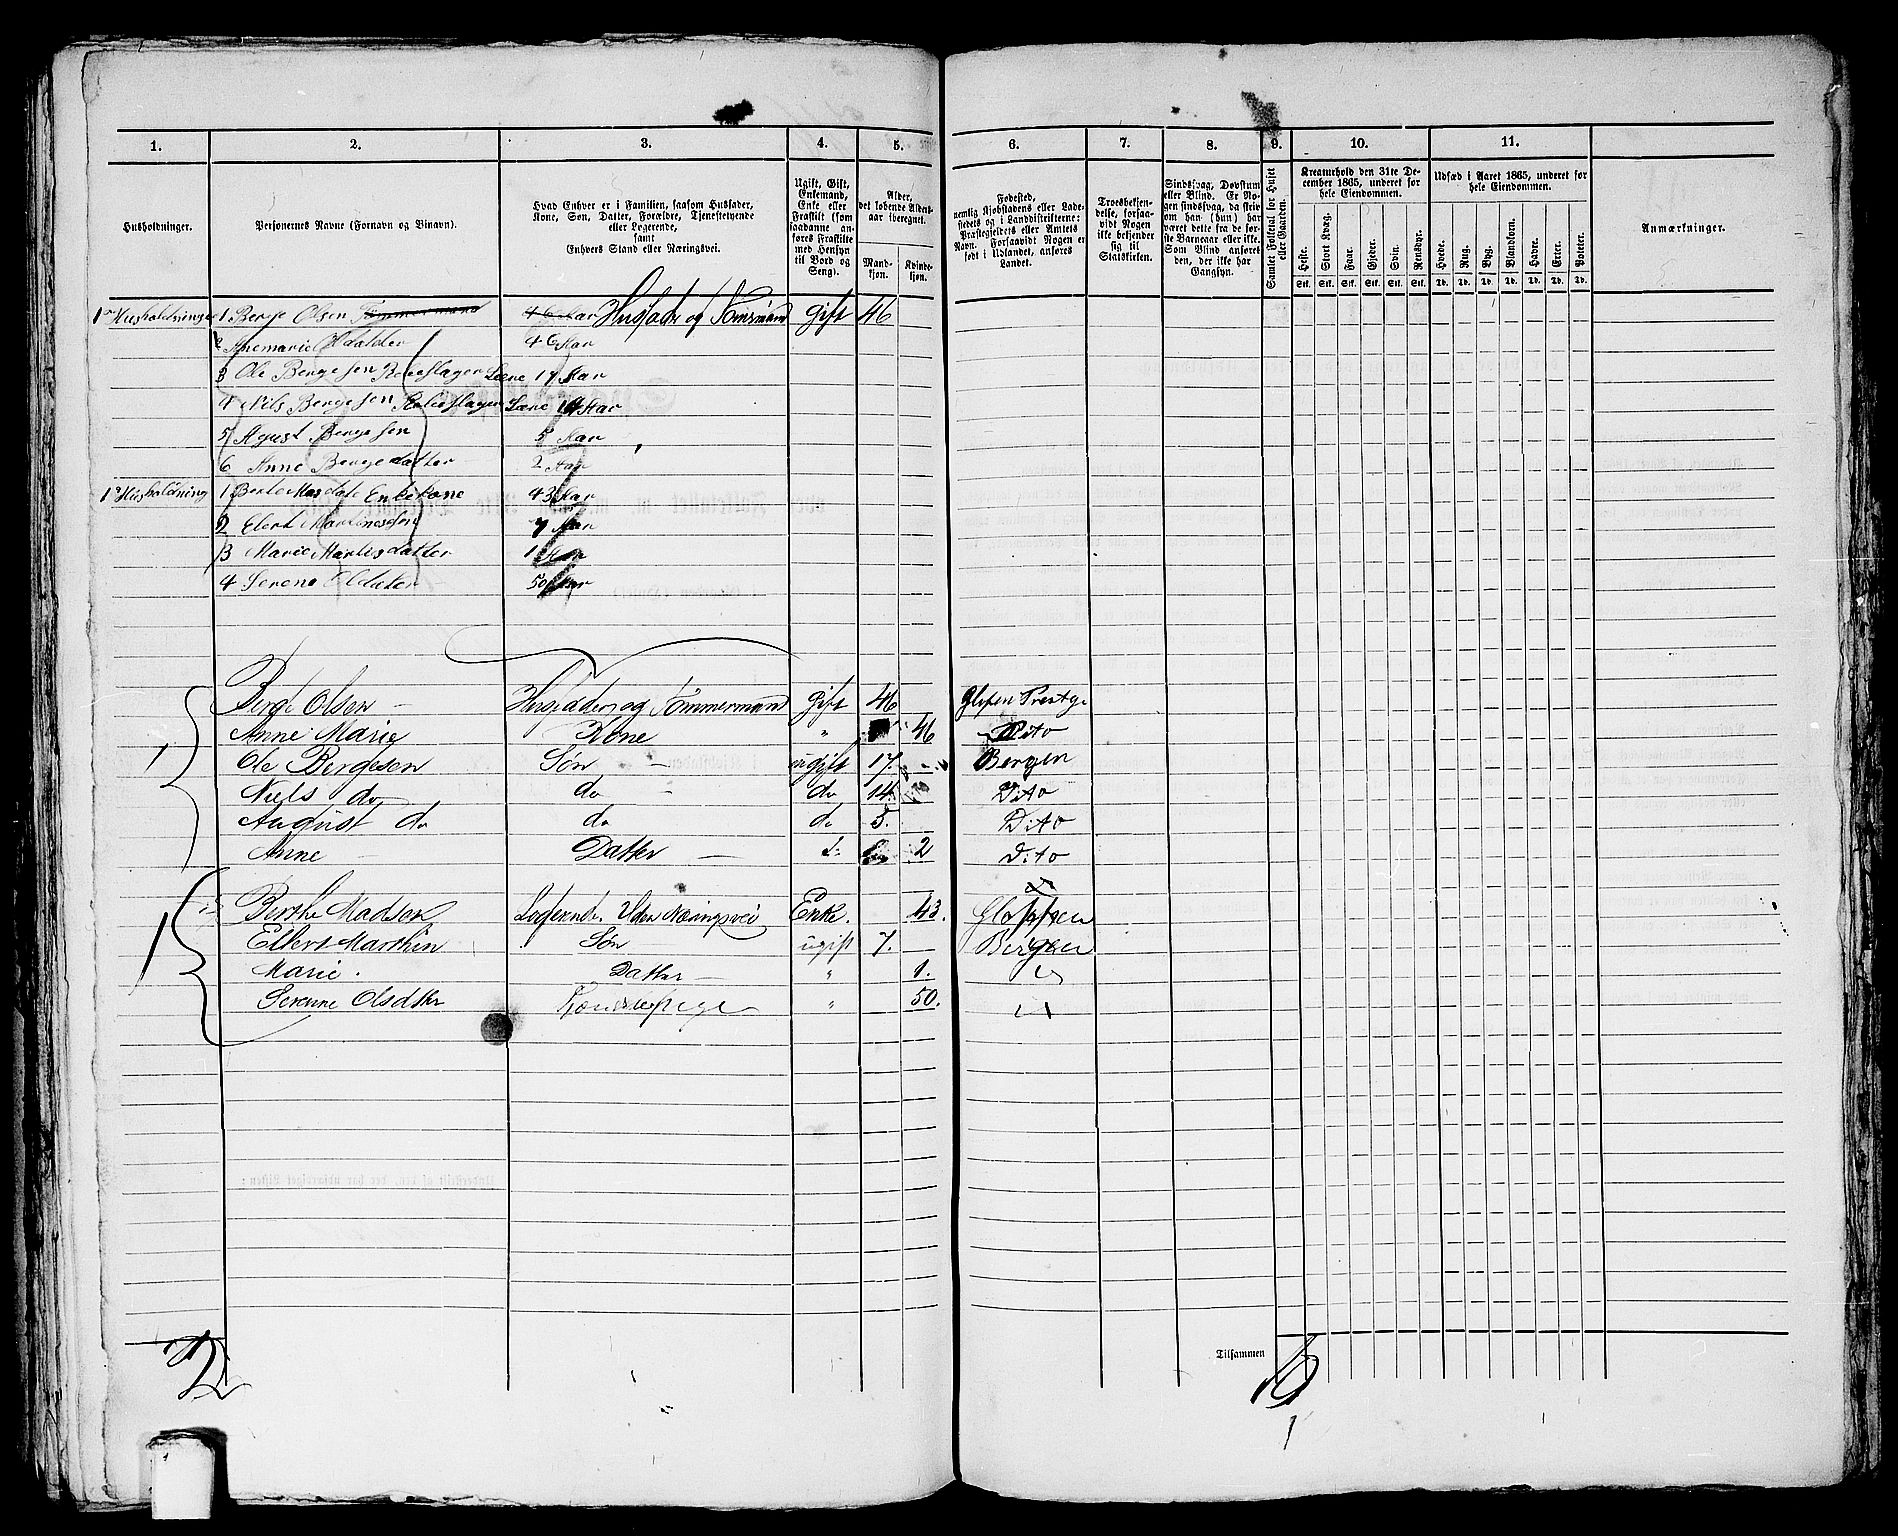 1. 2. 3. 4. 5. 6. 7. 8. 9. 10. 11.
Husholdninger.
Personernes Navne (Fornavn og Binavn).
Hvad Enhver er i Familien, saasom Husfader,
Kone, Søn, Datter, Forældre, Tjenestetyende
eller Logerende,
samt
Enhvers Stand eller Næringsvei.
Ugift, Gift,
Enkemand,
Enke eller
Fraskilt (som
saadanne an-
føres Fraskilte
med Hensyn
til Bord og
Seng).
Alder,
det løbende Alders-
aar iberegnet.
Mand-
kjøn.
Kvinde-
kjøn.
Fødested,
nemlig Kjøbstadens eller Lade-
stedets og i Landdistrikterne:
Præstegjeldets eller Amtets
Navn. Forsaavidt Nogen er
født i Udlandet, anføres
Landet.
Troesbekjen-
delse, forsaa-
vidt Nogen
ikke bekjender
sig til
Statskirken.
Sindssvag, Døvstum
eller Blind. Er No-
gen sindssvag, da skriv
om han (hun) har
været dette fra de før-
ste Barneaar eller ikke.
Som Blind anføres
den, der ikke har
Gangsyn.
Samlet Folketal for Huset
eller Gaarden.
Kreaturhold den 31te De-
cember 1865, underet for
hele Eiendommen.
Heste. Stort Kvæg. Faar. Gjeder. Svin. Rensdyr.
Stk. Stk. Stk. Stk. Stk. Stk.
Udsæd i Aaret 1865, underet for
hele Eiendommen.
Hvede. Rug. Byg. Blandkorn. Havre. Erter. Poteter.
Td. Td. Td. Td. Td. Td. Td.
Anmærkninger.
1 Husholdninger 1 Berje Olsen Tømmermand 46 Aar Husfader og Tømsmand gift 46
2 Anemarie Oldatter 46 Aar
3 Ole Bergesen Rebslager Lære 17 Aar
4 Nils Bergesen Rebslager Lære 14 Aar
5 Agust Bergesen 5 Aar
6 Anne Bergedatter 2 Aar
1 Husholdning 1 Berte Enkekone 43 Aar
2 Elert Martinessøn 7 Aar
3 Marie Martisdatter 1 Aar
4 Serene Oldater 50 Aar
1 Berge Olsen Husfader og Tømmermand gift 46 Glopen Prestge
Anne Marie Kone " 46 Dito
Ole Bergesen Søn ugift 17. Bergen
Niels do do do 14. Dito
August do do do 5. Dito
Anne Datter d: 2 Dito
1 Berthe Madsen Logerende. Uden Næringsvei Enke. 43. Gloppen
Ellert Marthin Søn ugift 7. Bergen
Marie. Datter " 1.
Serenne Olsdtter " 50.
2
Tilsammen 10